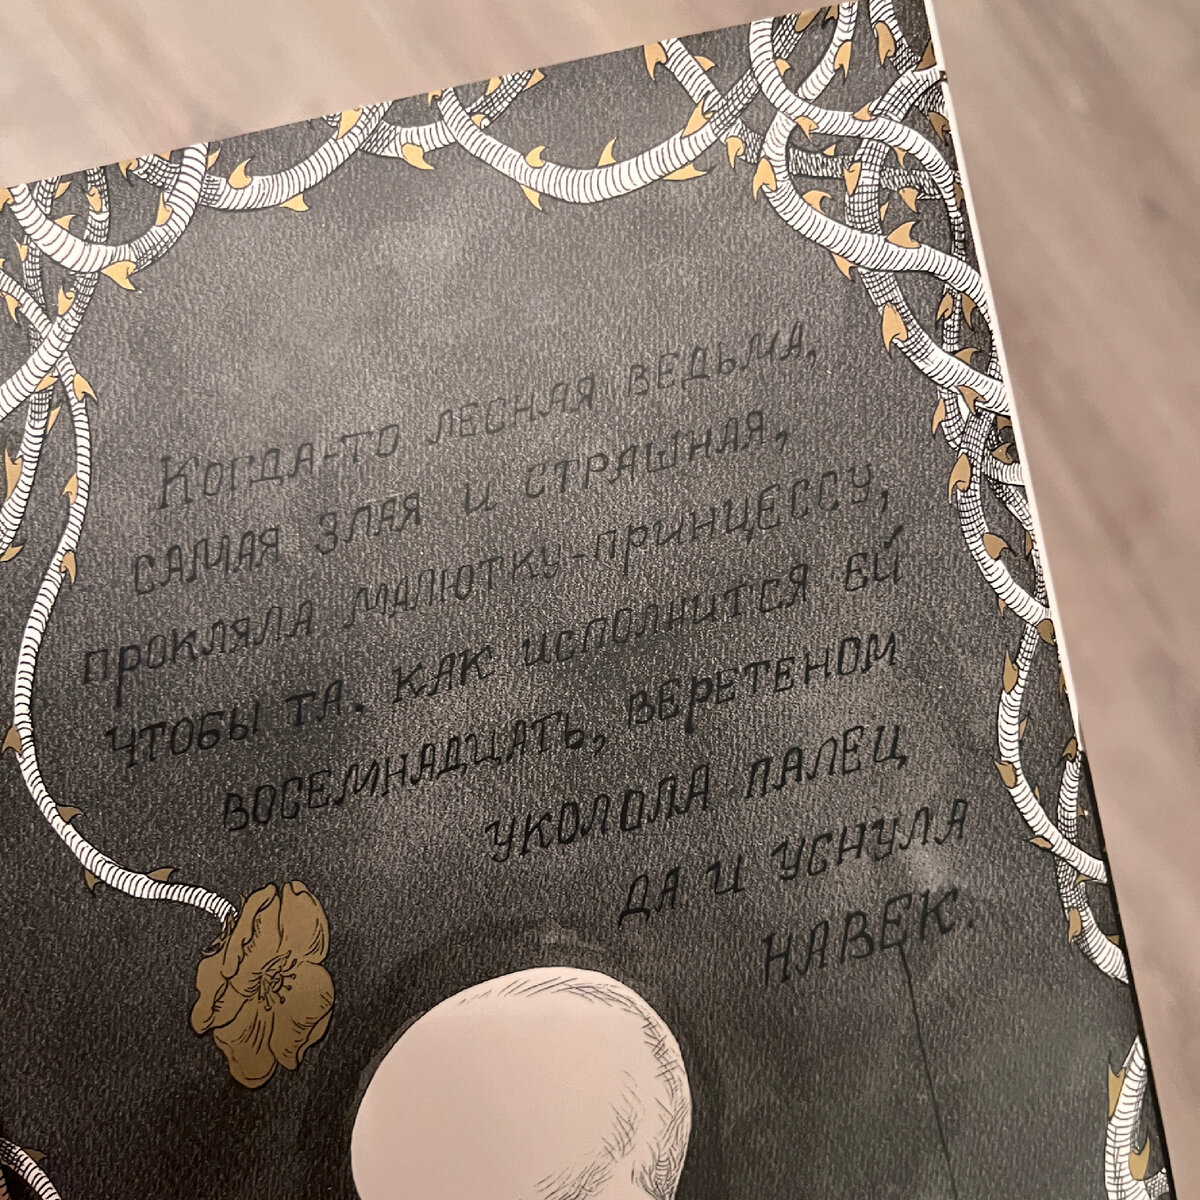 Когда-то лесная ведьма,
самая злая и страшная,
прокляла малютку-принцессу,
чтобы та, как исполнится ей
восемнадцать, веретеном
уколола палец
да и уснула
навек.